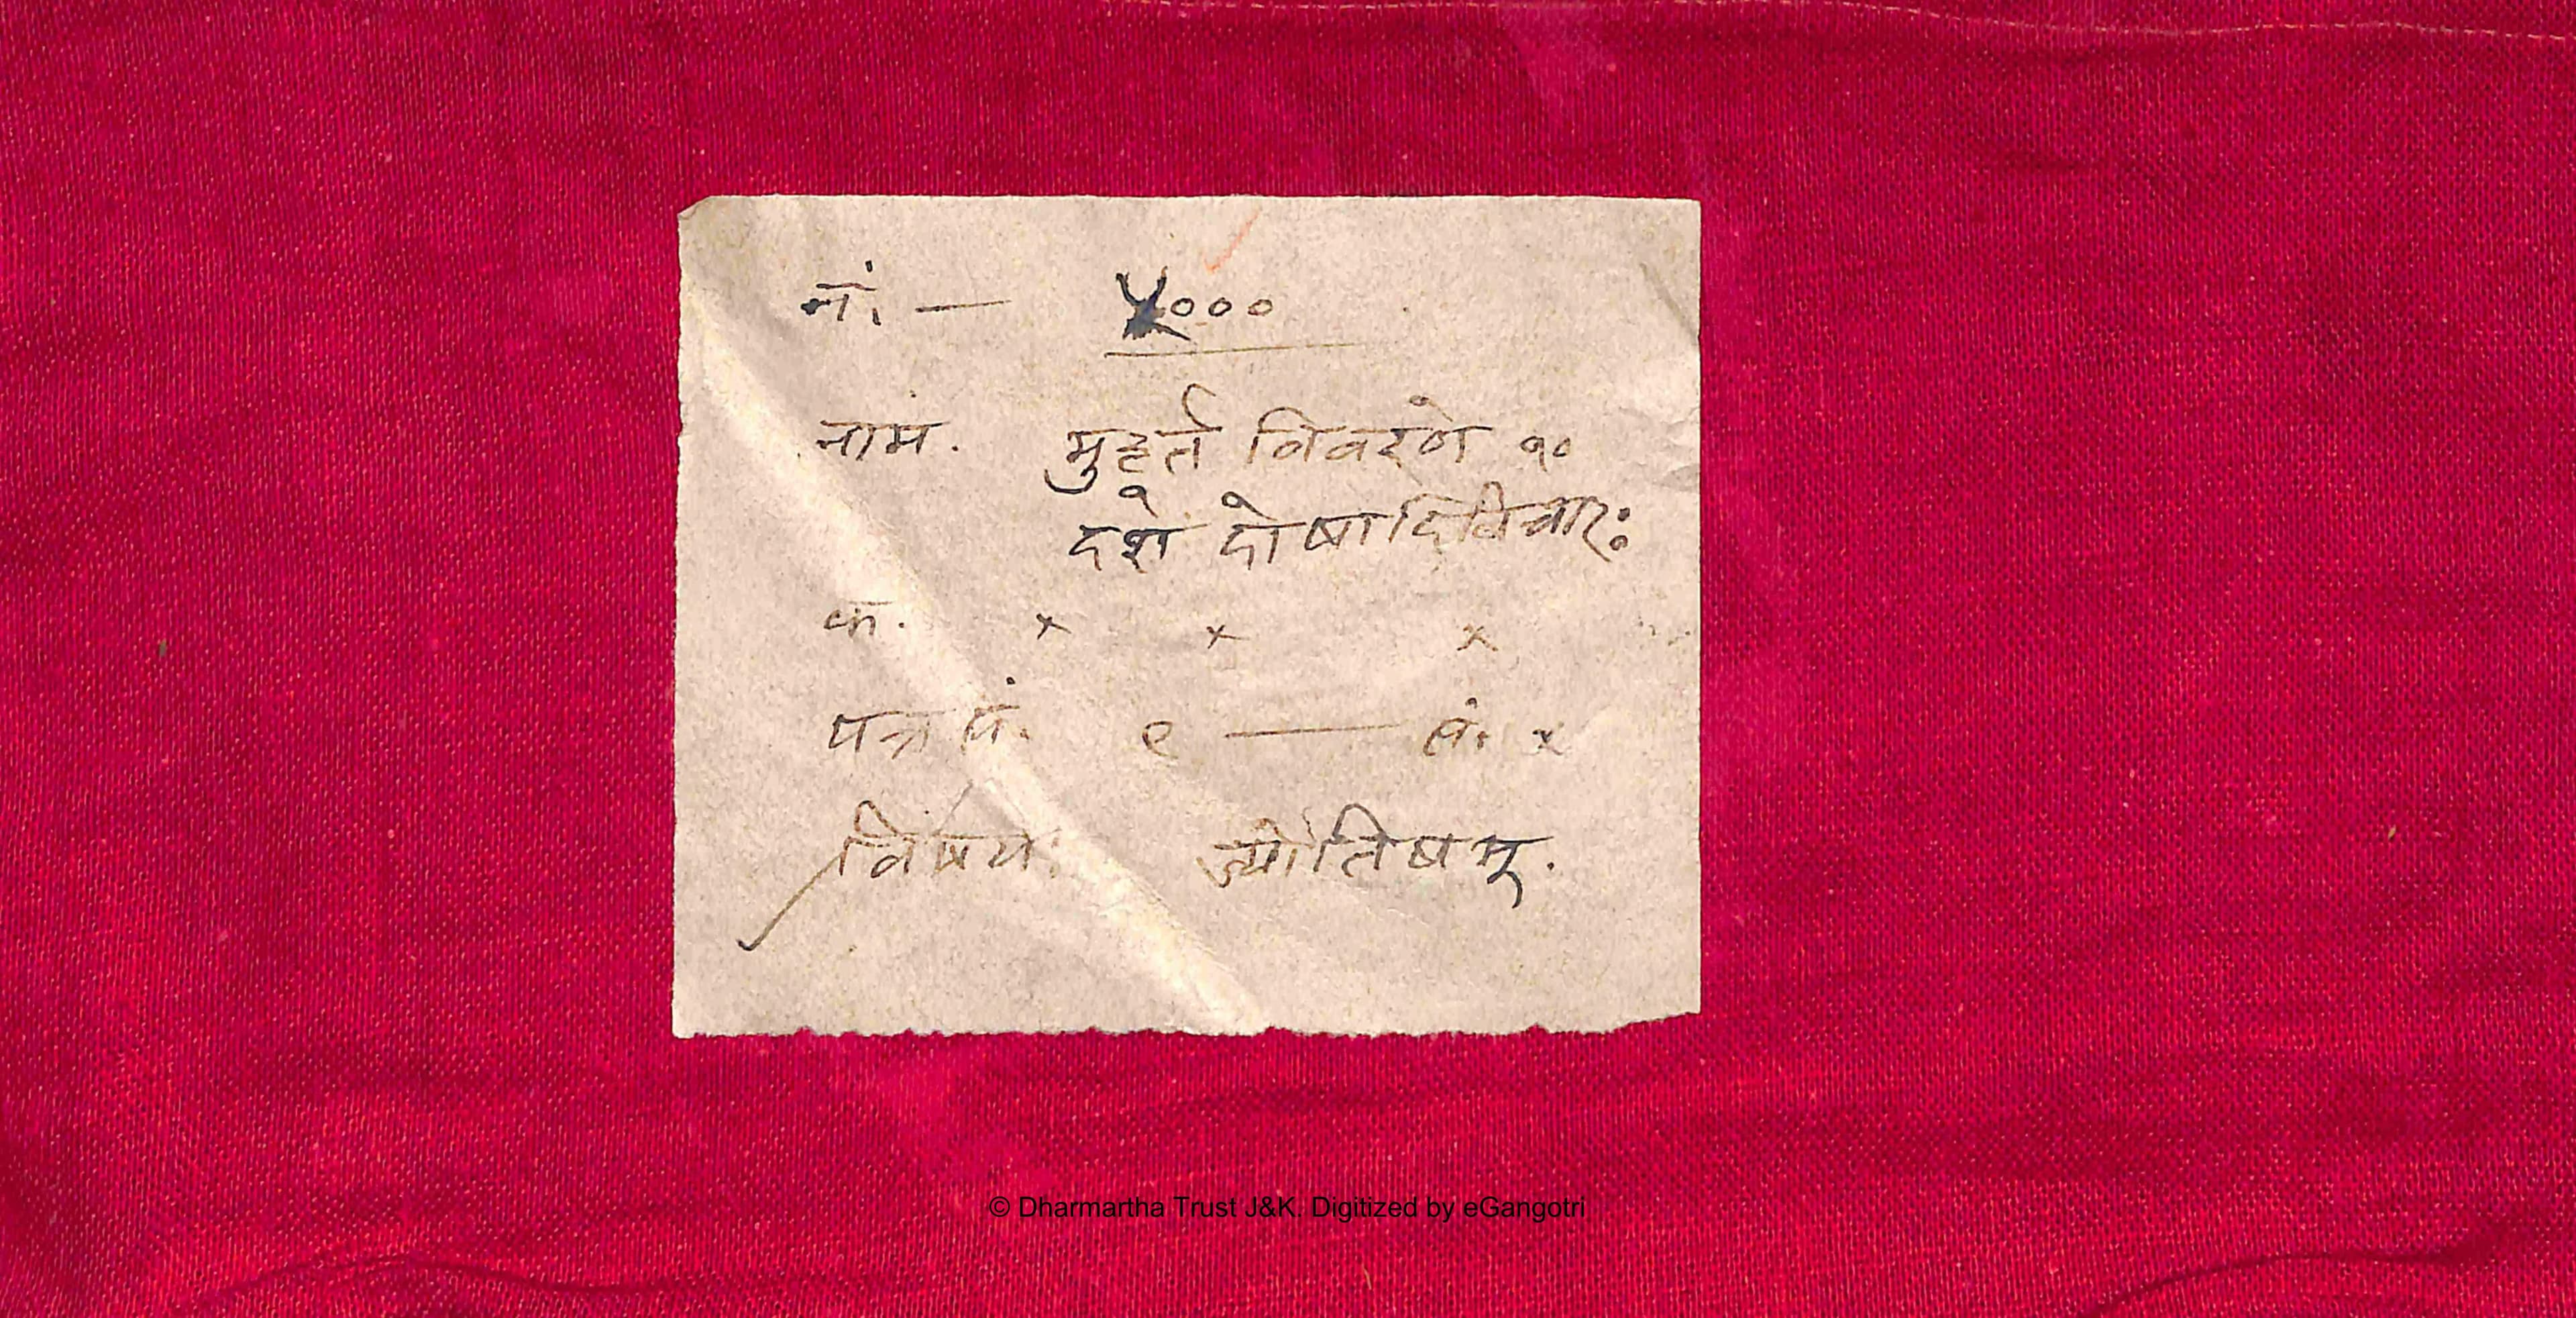 नं. — ५०००
नाम. मुहूर्त विवरणे १०
दशे दोषादिविचारः
क. × × ×
पत्र सं. ९ — सं. ×
विषयः ज्योतिषम्.
© Dharmartha Trust J&K. Digitized by eGangotri